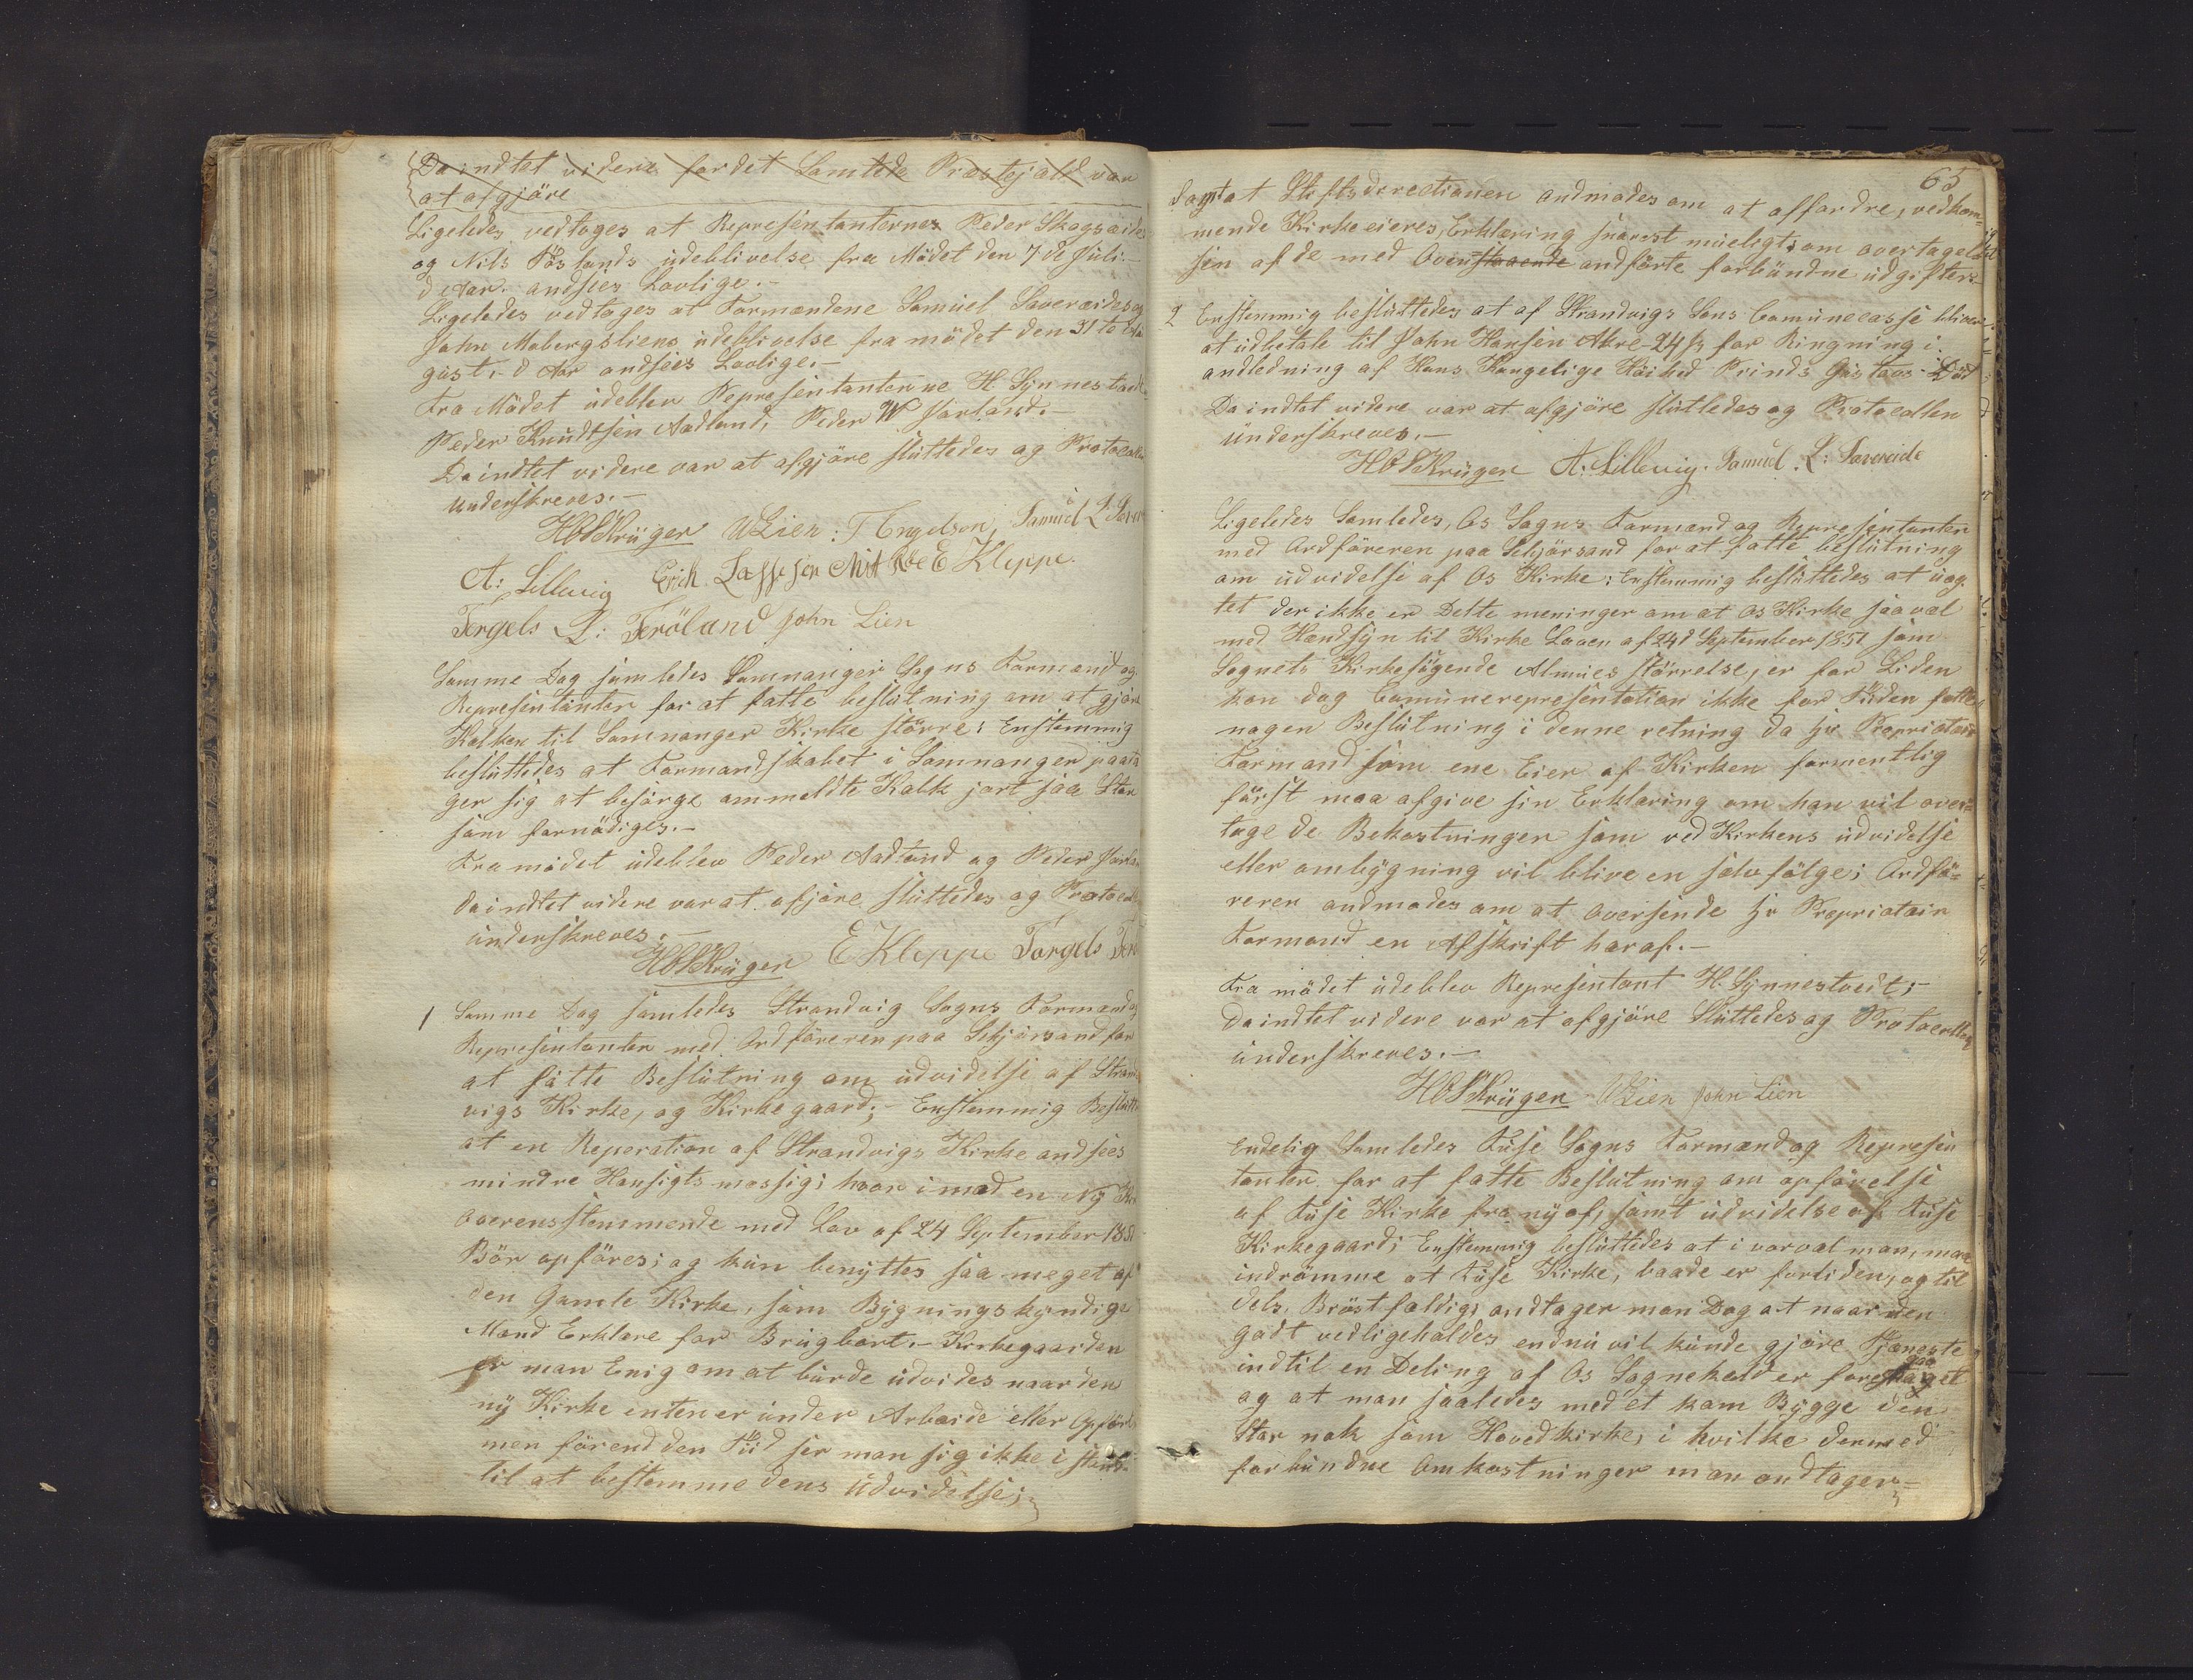 Da indtet videre for det Samlede Præstegjæld var
at afgjöre
Ligeledes vedtoges at Representanternes Peder Skogseides
og Nils Röslands udeblivelse fra Mödet den 7de Juli
d Aar. andsees Lovlige.-
Ligeledes vedtoges at Formændene Samuel Saveraides og
John Mobergsliens udeblivelse fra mödet den 31te
gust. d Aar andsees Lovlige.-
Fra Mödet udeblev Representanterne H. Synnestvedt
Peder Knudtsen Aadland, Peder W Havland.-
Da indtet videre var at afgjöre sluttedes og Protocollen
underskreves.-
HOSKrüger WLien: T Engelsen, Samuel L: Saver
A: Lillevig Erich Lassesen E Kleppe.
Torgels L: Feröland John Lien
Samme Dag samledes Samnanger Sogns Formænd og
Representanter for at fatte beslutning om at gjöre
Kalken til Samnanger Kirke större: Enstemmig
besluttedes at Formandskabet i Samnanger paata
ger sig at besörge ommeldte Kalk jort saa Stor
som fornödiges.-
Fra mödet udeblev Peder Aadland og Peder Havla
da indtet videre var at afjöre sluttedes og Protocol
underskreves.-
HOSKrüger E Kleppe Torgels Fer
1 Samme Dag samledes Strandvig Sogns Formænd og
Representanter med Ordföreren paa Skjörsand for
at fatte Beslutning om udvidelse af Strand
vigs Kirke, og Kirkegaard;- Enstemmig Beslutte
at en Reperation af Strandvigs Kirke andsees
mindre Hensigtsmæssig; hvor imod en Ny Kir
overensstemmende med Lov af 24 September 1851
Bör opföres; og kun benyttes saa meget af
den Gamle Kirke, som Bygningskyndige
Mænd Erklære for Brugbart.- Kirkegaarden
er man Enig om at burde udvides naar den
ny Kirke enten er under Arbeide eller Opfört
men förend den Tiid ser man sig ikke i stand
til at bestemme dens Udvidelse;
65
Samt at Stiftsdirectionen andmodes om at affordre, vedkom-
mende Kirkeeieres, Erklæring snarest muelegt, om overtagel
sen af de med Ovenstaaende andförte forbundne udgifter.-
2 Enstemmig besluttedes at af Strandvigs Sogns Comunecasse bliver
at udbetale til John Hansen Akre - 24 ß for Ringning i
andledning af Hans Kongelige Höihed Prinds Gustavs Död
Da indtet videre var at afgjöre sluttedes og Protocollen
underskreves.-
HOSKrüger A: Lillevig. Samuel. L: Saveraide
Ligeledes Samledes, Os Sogns Formænd og Representanter
med Ordföreren paa Skjörsand for at fatte beslutning
om udvidelse af Os Kirke: Enstemmig besluttedes at uag-
tet der ikke er Delte meninger om at Os Kirke saavel
med Hendsyn til Kirke Loven af 24d September 1851 som
Sognets Kirkesögende Almues störrelse, er for Liden
kan dog Comunerepresentation ikke for Tiden fatte
nogen Beslutning i denne retning da hr Proprietair
Formand som ene Eier af Kirken formentlig
först maa afgive sin Erklæring om han vil over-
tage de Bekostninger som ved Kirkens udvidelse
eller ombygning vil blive en selv fölge; Ordfö-
reren andmodes om at Oversende hr Proprietair
Formand en Afskrift heraf.-
Fra mödet udeblev Representant H. Synnestvedt;-
Da indtet videre var at afgjöre Sluttedes og Protocollen
underskreves.-
HOSKrüger WLien John Lien
Endelig Samledes Fuse Sogns Formænd og Represen
tanter. for at fatte Beslutning om opförelse
af Fuse Kirke fra ny af, samt udvidelse af Fuse
Kirkegaard; Enstemmig besluttedes at i vorvel man, maa
indrömme at Fuse Kirke, baade er forliden, og til
dels, Bröstfældig, andtager man Dog at naar den
godt vedligeholdes endnu vil kunde gjöre Tjeneste
indtil en Deling af Os Sognekald er foregaaet
og at man saaledes med et kan Bygge den
Stor nok som Hovedkirke, i hvilke dermed
forbundne Omkostninger man andtager=